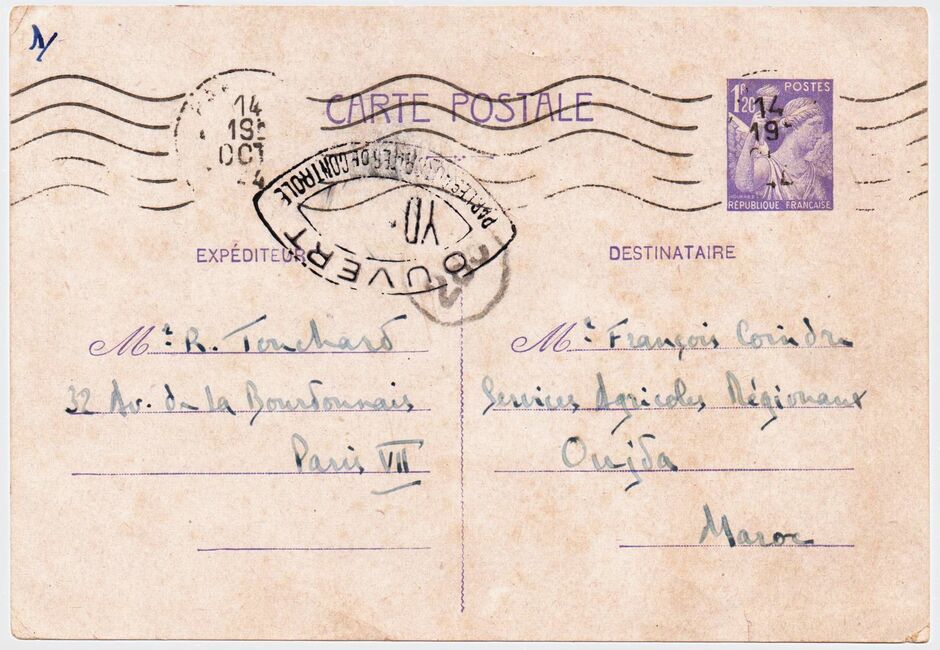 1/
14
19
OCT
24
CARTE POSTALE
1F20
POSTES
RÉPUBLIQUE FRANÇAISE
14
19
OUVERT
DE CONTROLE
YD
EXPÉDITEUR
DESTINATAIRE
Mr R. Touchard
32 Av. de la Bourdonnais
Paris VII
Mr François Coindre
Services Agricoles Régionaux
Oujda
Maroc